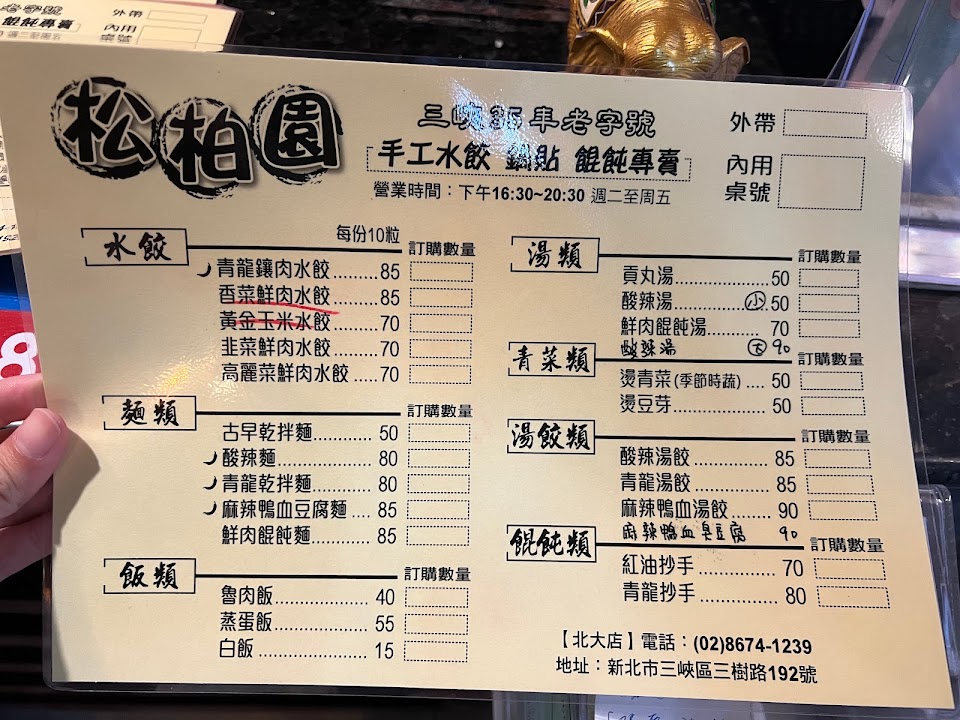 老字號
餛飩專賣
週二至周五
外帶
內用
桌號
松柏園
三峽35年老字號
手工水餃 鍋貼 餛飩專賣
營業時間：下午16:30~20:30 週二至周五
外帶
內用
桌號
水餃 每份10粒 訂購數量
青龍鑲肉水餃.........85
香菜鮮肉水餃.........85
黃金玉米水餃.........70
韭菜鮮肉水餃.........70
高麗菜鮮肉水餃.....70
麵類 訂購數量
古早乾拌麵............50
酸辣麵..................80
青龍乾拌麵............80
麻辣鴨血豆腐麵....85
鮮肉餛飩麵............85
飯類 訂購數量
魯肉飯....................40
蒸蛋飯....................55
白飯.......................15
湯類 訂購數量
貢丸湯....................50
酸辣湯 小 50
鮮肉餛飩湯............70
酸辣湯 大 90
青菜類 訂購數量
燙青菜(季節時蔬)....50
燙豆芽....................50
湯餃類 訂購數量
酸辣湯餃................85
青龍湯餃................85
麻辣鴨血湯餃.........90
麻辣鴨血臭豆腐 90
餛飩類 訂購數量
紅油抄手................70
青龍抄手................80
【北大店】電話：(02)8674-1239
地址：新北市三峽區三樹路192號